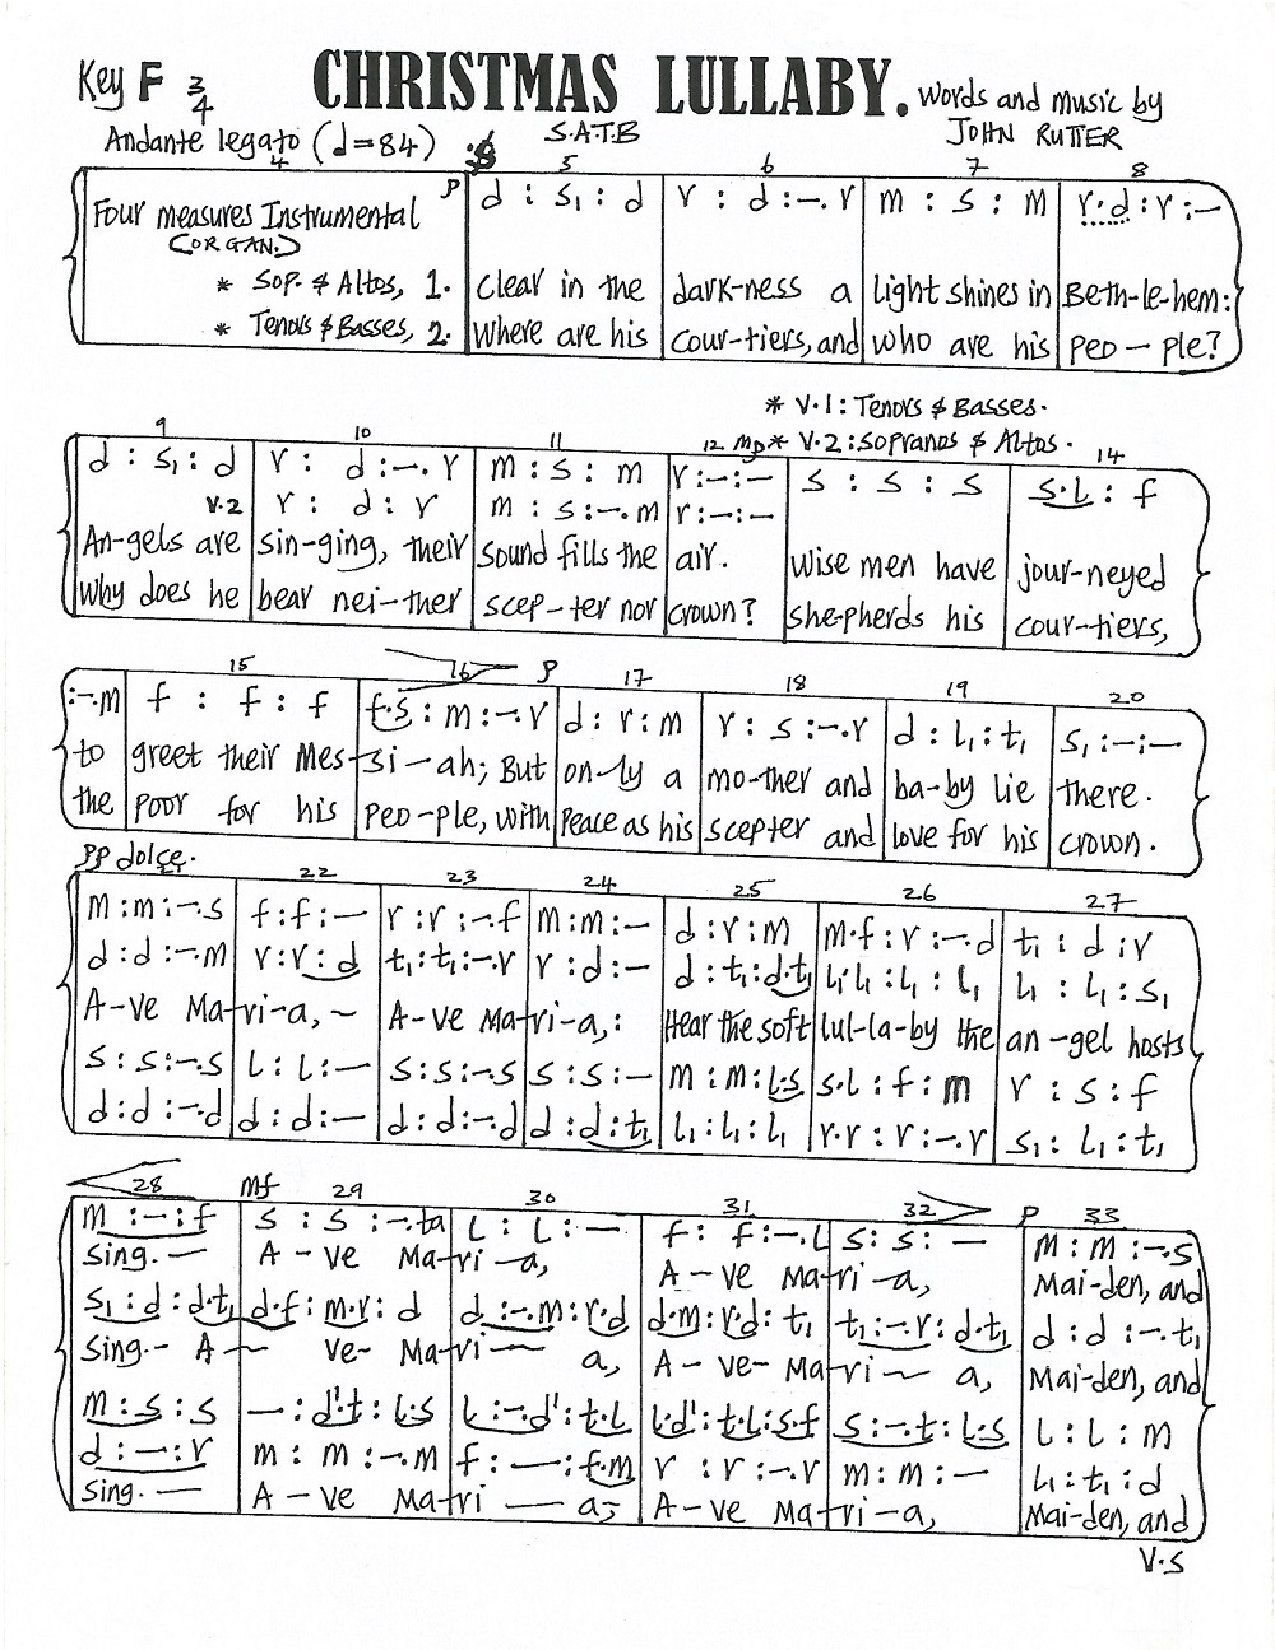 Key F 3/4 CHRISTMAS LULLABY. Words and music by
Andante legato (d=84) S.A.T.B JOHN RUTTER
4 5 6 7 8
p d : s₁ : d | r : d :-. r | m : s : m | r.d : r :-
Four measures Instrumental
(ORGAN.)
* Sop. & Altos, 1. Clear in the | dark-ness a | light shines in | Beth-le-hem:
* Tenors & Basses, 2. Where are his | cour-tiers, and | who are his | peo-ple?
* V.1: Tenors & Basses.
9 10 11 12 mp * V.2: Sopranos & Altos. 14
d : s₁ : d | r : d :-. r | m : s : m | r :-:- | s : s : s | s.l : f
V.2 r : d : r | m : s :-. m | r :-:-
An-gels are | sin-ging, their | sound fills the | air. | Wise men have | jour-neyed
Why does he | bear nei-ther | scep-ter nor | crown? | she-pherds his | cour-tiers,
15 16 p 17 18 19 20
:-.m | f : f : f | f.s : m :-. r | d : r : m | r : s :-. r | d : l₁ : t₁ | s₁ :-:-
to | greet their Mes-si-ah; But | on-ly a | mo-ther and | ba-by lie | there.
the | poor for his | peo-ple, with | peace as his | scepter and | love for his | crown.
pp dolce.
22 23 24 25 26 27
m : m :-. s | f : f :- | r : r :-. f | m : m :- | d : r : m | m.f : r :-. d | t₁ : d : r
d : d :-. m | r : r : d | t₁ : t₁ :-. r | r : d :- | d : t₁ : d.t₁ | l₁.l₁ : l₁ : l₁ | l₁ : l₁ : s₁
A-ve Ma-ri-a,- | A-ve Ma-ri-a,: | Hear the soft | lul-la-by the | an-gel hosts
s : s :-. s | l : l :- | s : s :-. s | s : s :- | m : m : l.s | s.l : f : m | r : s : f
d : d :-. d | d : d :- | d : d :-. d | d : d : t₁ | l₁ : l₁ : l₁ | r.r : r :-. r | s₁ : l₁ : t₁
28 mf 29 30 31 32 p 33
m :-: f | s : s :-. ta | l : l :- | f : f :-. l | s : s :- | m : m :-. s
sing.- | A-ve Ma-ri-a, | A-ve Ma-ri-a, | Mai-den, and
s₁ : d : d.t₁ | d.f : m.r : d | d :-. m : r.d | d.m : r.d : t₁ | t₁ :-. r : d.t₁ | d : d :-. t₁
sing.- A- ve- Ma-ri- a, | A-ve- Ma-ri- a, | Mai-den, and
m : s : s | - : d'.t : l.s | l :-. d' : t.l | l.d' : t.l : s.f | s :-. t : l.s | l : l : m
d :-: r | m : m :-. m | f :-: f.m | r : r :-. r | m : m :- | l₁ : t₁ : d
sing.- | A-ve Ma-ri-a,- | A-ve Ma-ri-a, | Mai-den, and
V.S